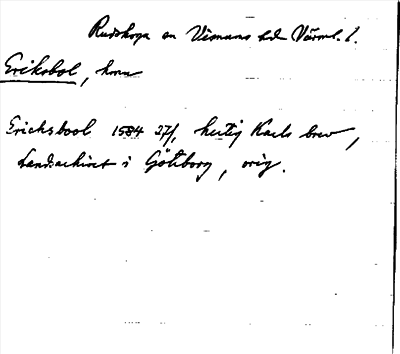 Rudskoga sn Visnums hd Värml. l.
Eriksbol, hmn
Erichsbool 1584 27/, hertig Karls brev,
Landsarkivet i Göteborg, orig.